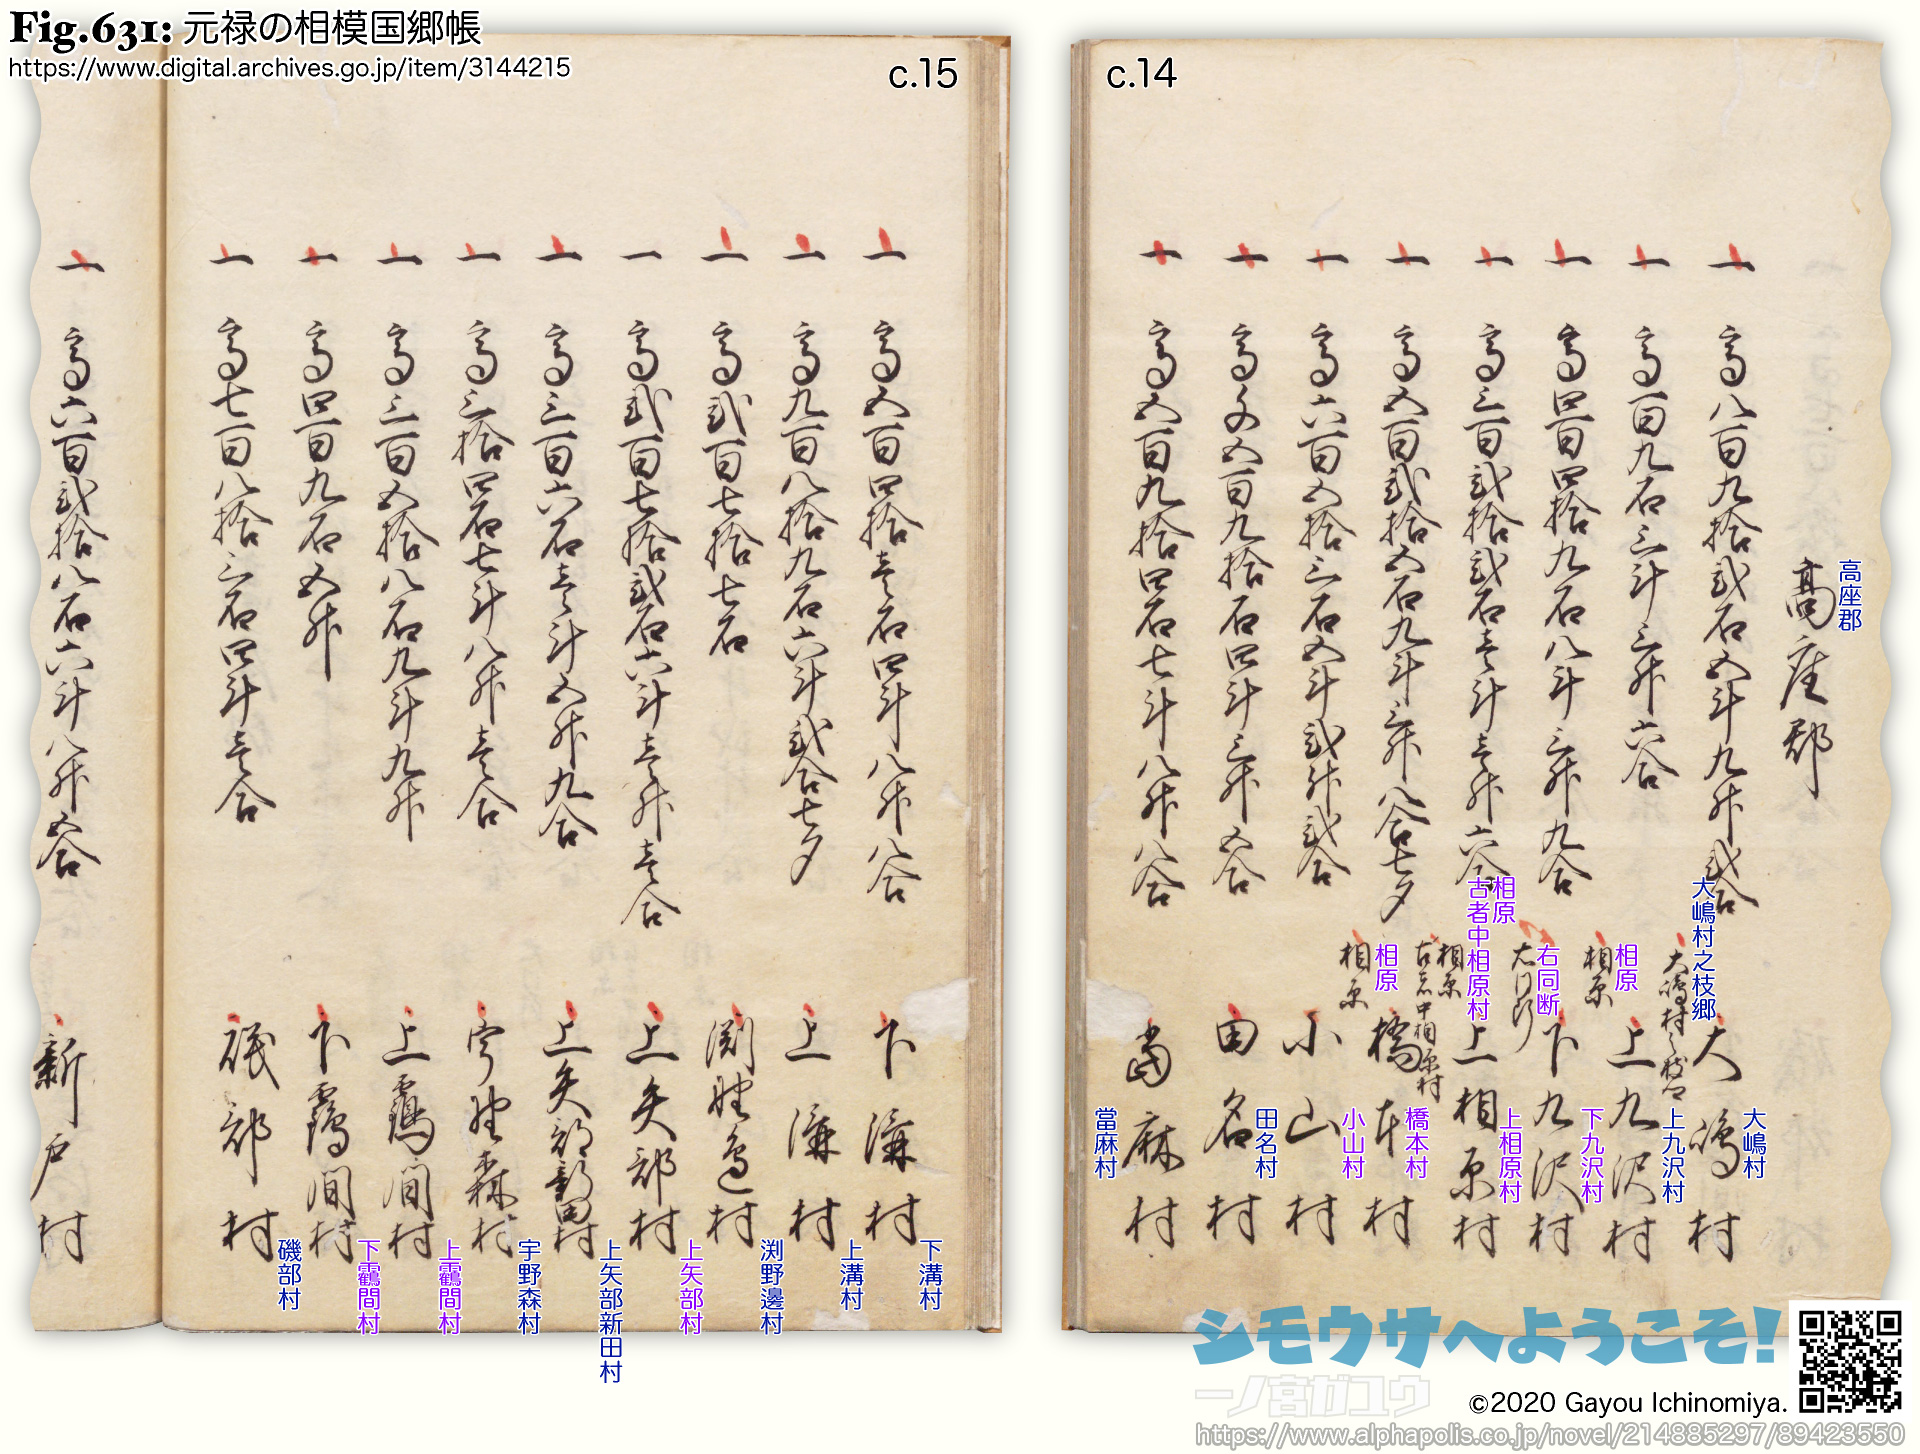 Fig.631: 元禄の相模国郷帳
https://www.digital.archives.go.jp/item/3144215
c.14
高座郡
高座郡
一 高八百九拾弐石五斗九升弐合 大嶋村之枝郷 大嶋村
大嶋村之枝郷
大嶋村
一 高百九石三斗三升六合 相原 上九沢村
相原
上九沢村
一 高四百四拾九石八斗三升九合 右同断 下九沢村
右同断
下九沢村
一 高三百弐拾弐石壱斗壱升六合 相原 古者中相原村 上相原村
相原
古者中相原村
上相原村
一 高五百弐拾五石九斗三升八合七夕 相原 橋本村
相原
橋本村
一 高六百五拾三石五斗弐升弐合 小山村
小山村
一 高千五百九拾石四斗三升五合 田名村
田名村
一 高五百九拾四石七斗八升八合 當麻村
當麻村
c.15
一 高五百四拾壱石四斗八升八合 下溝村
下溝村
一 高九百八拾九石六斗弐合七夕 上溝村
上溝村
一 高弐百七拾七石 渕野邊村
渕野邊村
一 高弐百七拾弐石六斗壱升壱合 上矢部村
上矢部村
一 高三百六石壱斗五升九合 上矢部新田村
上矢部新田村
一 高三拾四石七斗八升壱合 宇野森村
宇野森村
一 高三百五拾八石九斗九升 上靏間村
上靏間村
一 高四百九石五升 下靏間村
下靏間村
一 高七百八拾三石四斗壱合 磯部村
磯部村
一 高六百弐拾八石六斗八升五合 新戸村
シモウサへようこそ!
一ノ宮ガユウ
©2020 Gayou Ichinomiya.
https://www.alphapolis.co.jp/novel/214885297/89423550